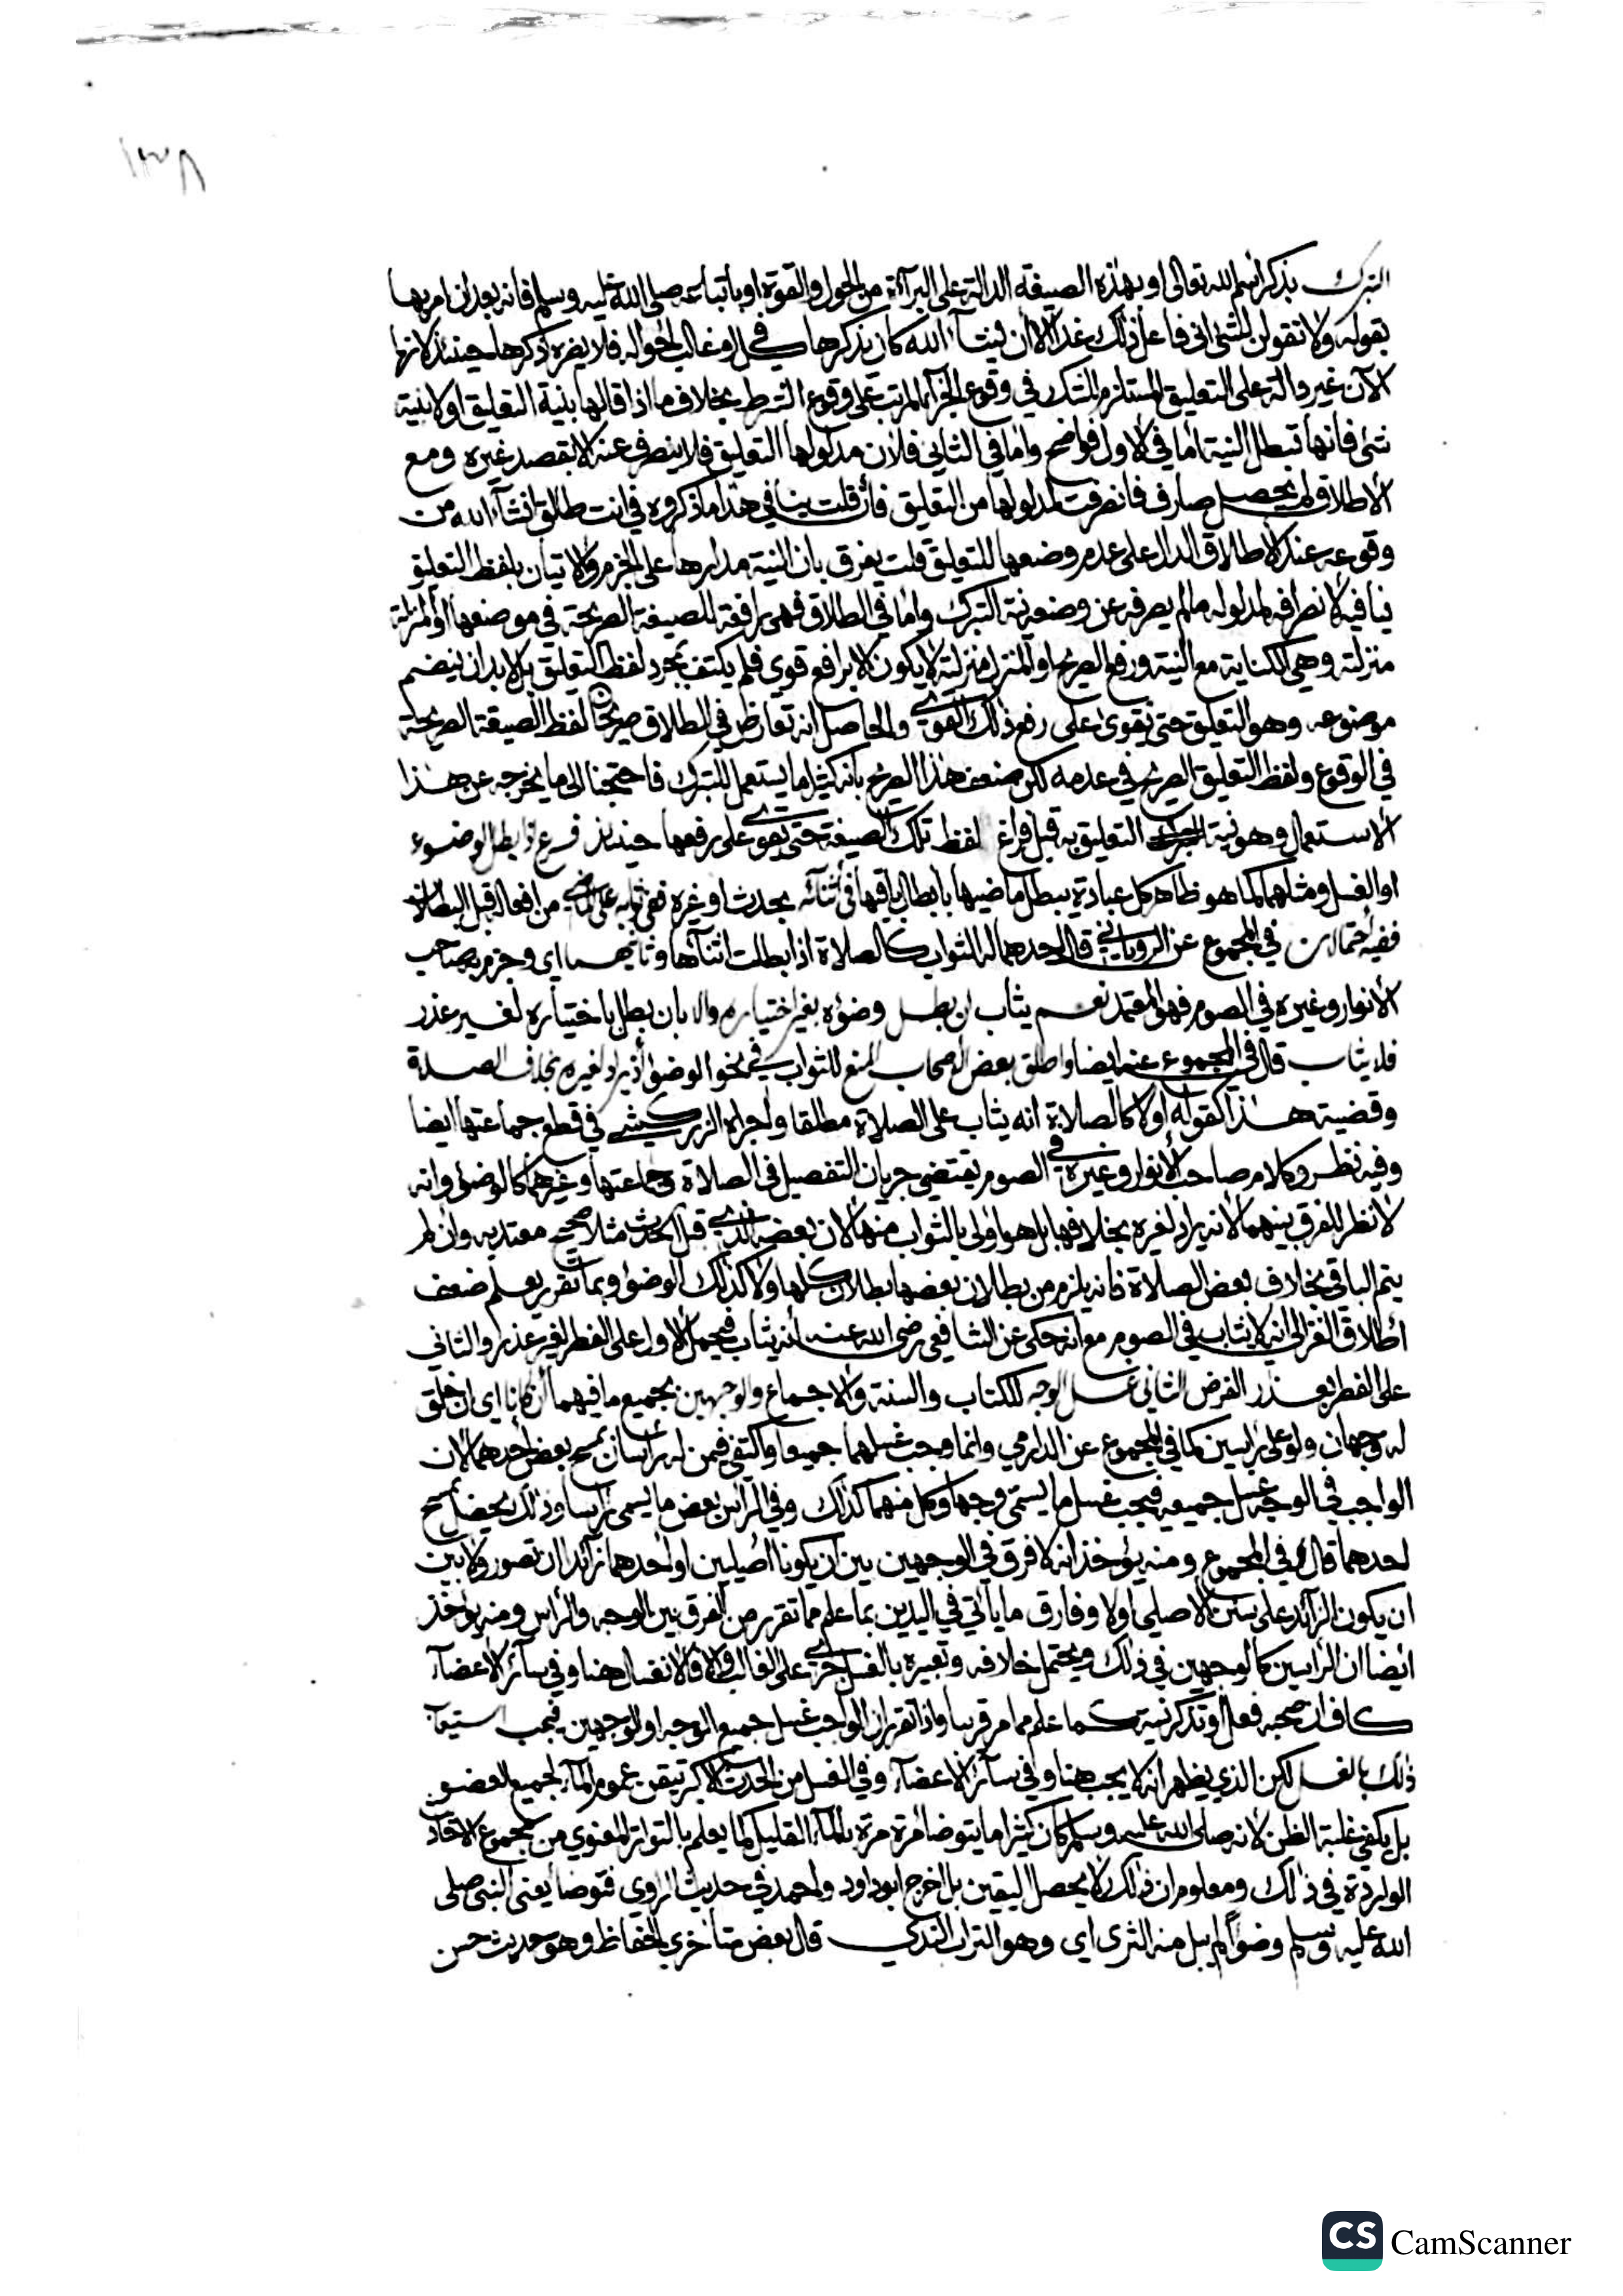 ١٣٨
التبرك بذكر اسم الله تعالى او بهذه الصيغة الدالة على البراءة من الحول والقوة او باتباعه صلى الله عليه وسلم فانه بعد ان امر بها
بقوله ولا تقولن لشئ اني فاعل ذلك غدا الا ان يشآء الله كان يذكرها في كل او غالب احواله فلا يضره ذكرها حينئذ لانها
الآن غير دالة على التعليق المستلزم للشك في وقوع الجزآء المرتب على وقوع الشرط بخلاف ما اذا قالها بنية التعليق او لا بنية
شئ فانها تبطل النية اما في الاول فواضح واما في الثاني فلان مدلولها التعليق فلا ينصرف عنه الا بقصد غيره ومع
الاطلاق لم يحصل صارف فانصرفت لمدلولها من التعليق فان قلت ينافي هذا ما ذكروه في انت طالق انشآء الله من
وقوعه عند الاطلاق الدال على عدم وضعها للتعليق قلت يفرق بان النية مدارها على الجزم والاتيان بلفظ التعليق
ينافيه لانصرافه لمدلوله مالم يصرفه عن وضعه نية التبرك واما في الطلاق فهي رافعة للصيغة الصريحة في موضعها او المنزلة
منزلته وهي الكناية مع النية ورفع الصريح او المنزل منزلته لا يكون الا برافع قوي فلم يكتف بمجرد لفظ التعليق بل لا بد ان ينضم
موضوعه وهو التعليق حتى يقوى على رفع ذلك القوي والحاصل انه تعارض في الطلاق صريحان لفظ الصيغة الصريحة
في الوقوع ولفظ التعليق الصريح في عدمه لكن ضعف هذا الصريح بانه كثيرا ما يستعمل للتبرك فاحتجنا الى ما يخرجه عن هذا
الاستعمال وهو نية التعليق به قبل فراغ لفظ تلك الصيغة حتى يقوى على رفعها حينئذ فرع اذا بطل الوضوء
او الغسل ومثلهما كما هو ظاهر كل عبادة يبطل ماضيها بابطال باقيها في اثنآئه بحدث او غيره ففي ثوابه على الماضي من افعاله قبل البطلان
ففيه احتمالان في المجموع عن الروياني قال احدهما له الثواب كالصلاة اذا بطلت اثنآءها وثانيهما اي وجزم به صاحب
الانوار وغيره في الصوم فهو المعتمد نعم يثاب ان بطل وضوءه بغير اختياره والا بان بطل باختياره لغير عذر
فلا يثاب قال في المجموع عنه ايضا واطلق بعض الاصحاب المنع للثواب في نحو الوضوء اذ يراد لغيره بخلاف الصلاة
وقضية هذا كقوله اولا كالصلاة انه يثاب على الصلاة مطلقا واجراه الزركشي في قطع جماعتها ايضا
وفيه نظر وكلام صاحب الانوار وغيره في الصوم يقتضي جريان التفصيل في الصلاة وجماعتها وغيرهما كالوضوء وانه
لا نظر للفرق بينهما لانه يراد لغيره بخلافها بل هو اولى بالثواب منها لان بعضه الذي قبل الحدث مثلا صحيح معتد به وان لم
يتم الباقي بخلاف بعض الصلاة فانه يلزم من بطلان بعضها بطلان كلها ولا كذلك الوضوء وبما تقرر يعلم ضعف
اطلاق الغزالي انه لا يثاب في الصوم مع انه حكى عن الشافعي رضي الله عنه انه يثاب فيحمل الاول على الفطر لغير عذر والثاني
على الفطر بعذر الفرض الثاني غسل الوجه للكتاب والسنة والاجماع والوجهين بجميع ما فيهما ان كانا اي ان خلق
له وجهان ولو على راسين كما في المجموع عن الدارمي وانما وجب غسلهما جميعا واكتفي فيمن له راسان بمسح بعض احدهما لان
الواجب في الوجه غسل جميعه فيجب غسل ما يسمى وجها وكل منهما كذلك وفي الراس بعض ما يسمى راسا وذلك يحصل بمسح
احدهما قاله في المجموع ومنه يؤخذ انه لا فرق في الوجهين بين ان يكونا اصليين او احدهما زآئد ان تصور ولا بين
ان يكون الزآئد على سمت الاصلي او لا وفارق ما ياتي في اليدين بما علم مما تقرر من الفرق بين الوجه والراس ومنه يؤخذ
ايضا ان الراسين كالوجهين في ذلك ويحتمل خلافه وتعبيره بالغسل جرى على الغالب والا فالانغسال هنا وفي سآئر الاعضآء
كاف ان صحبه فعل او تذكر نية كما علم مما مر قريبا واذا تقرر ان الواجب غسل جميع الوجه او الوجهين فيجب استيعاب
ذلك بالغسل لكن الذي يظهر انه لا يجب هنا وفي سآئر الاعضآء وفي الغسل من الحدث الاكبر تيقن عموم المآء لجميع العضو
بل يكفي غلبة الظن لانه صلى الله عليه وسلم كان كثيرا ما يتوضا مرة مرة بالمآء القليل كما يعلم بالتواتر المعنوي من مجموع الاحاد
الواردة في ذلك ومعلوم ان ذلك لا يحصل اليقين بل اخرج ابو داود واحمد في حديث الراوي فتوضا يعنى النبي صلى
الله عليه وسلم وضوآ لم يبل منه الثرى اي وهو التراب الندي قال بعض متاخري الحفاظ وهو حديث حسن
CS CamScanner